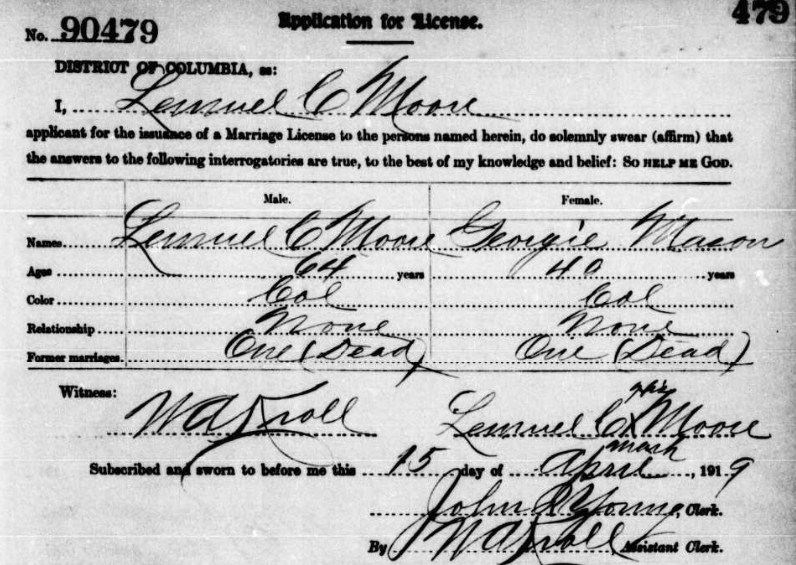 479
Application for License.
No. 90479
DISTRICT OF COLUMBIA, ss:
I, Lemuel C Moore
applicant for the issuance of a Marriage License to the persons named herein, do solemnly swear (affirm) that
the answers to the following interrogatories are true, to the best of my knowledge and belief: SO HELP ME GOD.
Male. Female.
Names Lemuel C Moore Georgie Mason
Ages 64 years 40 years
Color Col Col
Relationship None None
Former marriages One (Dead) One (Dead)
Witness:
his
W A Kroll Lemuel C x Moore
mark
Subscribed and sworn to before me this 15 day of April, 1919
John R Young, Clerk.
By W A Kroll Assistant Clerk.